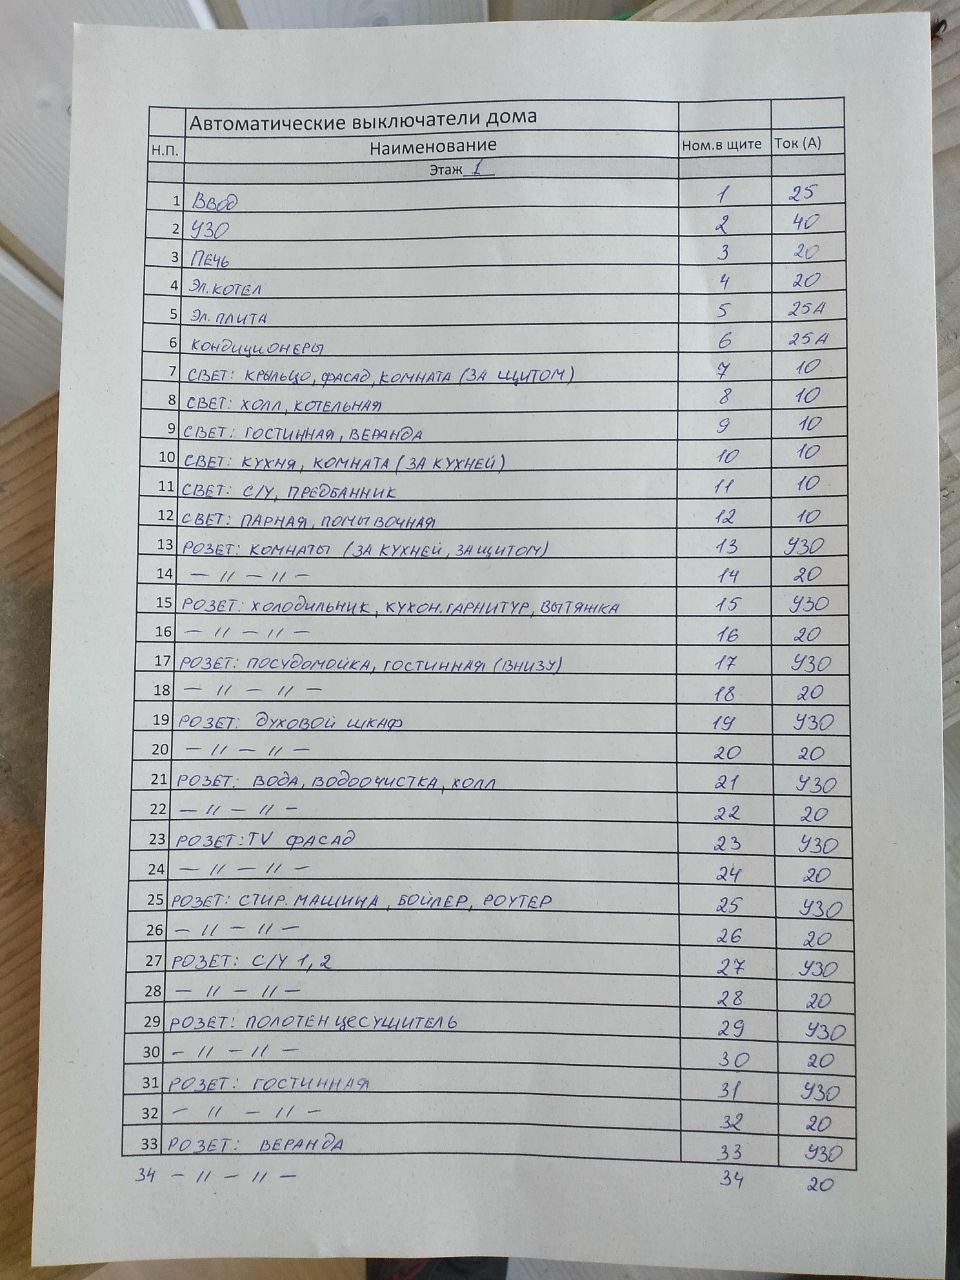 Автоматические выключатели дома
Н.П. Наименование Ном.в щите Ток (А)
Этаж 1
1 Ввод 1 25
2 УЗО 2 40
3 ПЕЧЬ 3 20
4 Эл. КОТЕЛ 4 20
5 Эл. ПЛИТА 5 25А
6 КОНДИЦИОНЕРЫ 6 25А
7 СВЕТ: КРЫЛЬЦО, ФАСАД, КОМНАТА (ЗА ЩИТОМ) 7 10
8 СВЕТ: ХОЛЛ, КОТЕЛЬНАЯ 8 10
9 СВЕТ: ГОСТИННАЯ, ВЕРАНДА 9 10
10 СВЕТ: КУХНЯ, КОМНАТА (ЗА КУХНЕЙ) 10 10
11 СВЕТ: С/У, ПРЕДБАННИК 11 10
12 СВЕТ: ПАРНАЯ, ПОМЫВОЧНАЯ 12 10
13 РОЗЕТ: КОМНАТЫ (ЗА КУХНЕЙ, ЗА ЩИТОМ) 13 УЗО
14 — // — // — 14 20
15 РОЗЕТ: ХОЛОДИЛЬНИК, КУХОН. ГАРНИТУР, ВЫТЯЖКА 15 УЗО
16 — // — // — 16 20
17 РОЗЕТ: ПОСУДОМОЙКА, ГОСТИННАЯ (ВНИЗУ) 17 УЗО
18 — // — // — 18 20
19 РОЗЕТ: ДУХОВОЙ ШКАФ 19 УЗО
20 — // — // — 20 20
21 РОЗЕТ: ВОДА, ВОДООЧИСТКА, ХОЛЛ 21 УЗО
22 — // — // — 22 20
23 РОЗЕТ: TV ФАСАД 23 УЗО
24 — // — // — 24 20
25 РОЗЕТ: СТИР. МАШИНА, БОЙЛЕР, РОУТЕР 25 УЗО
26 — // — // — 26 20
27 РОЗЕТ: С/У 1, 2 27 УЗО
28 — // — // — 28 20
29 РОЗЕТ: ПОЛОТЕНЦЕСУШИТЕЛЬ 29 УЗО
30 — // — // — 30 20
31 РОЗЕТ: ГОСТИННАЯ 31 УЗО
32 — // — // — 32 20
33 РОЗЕТ: ВЕРАНДА 33 УЗО
34 — // — // — 34 20